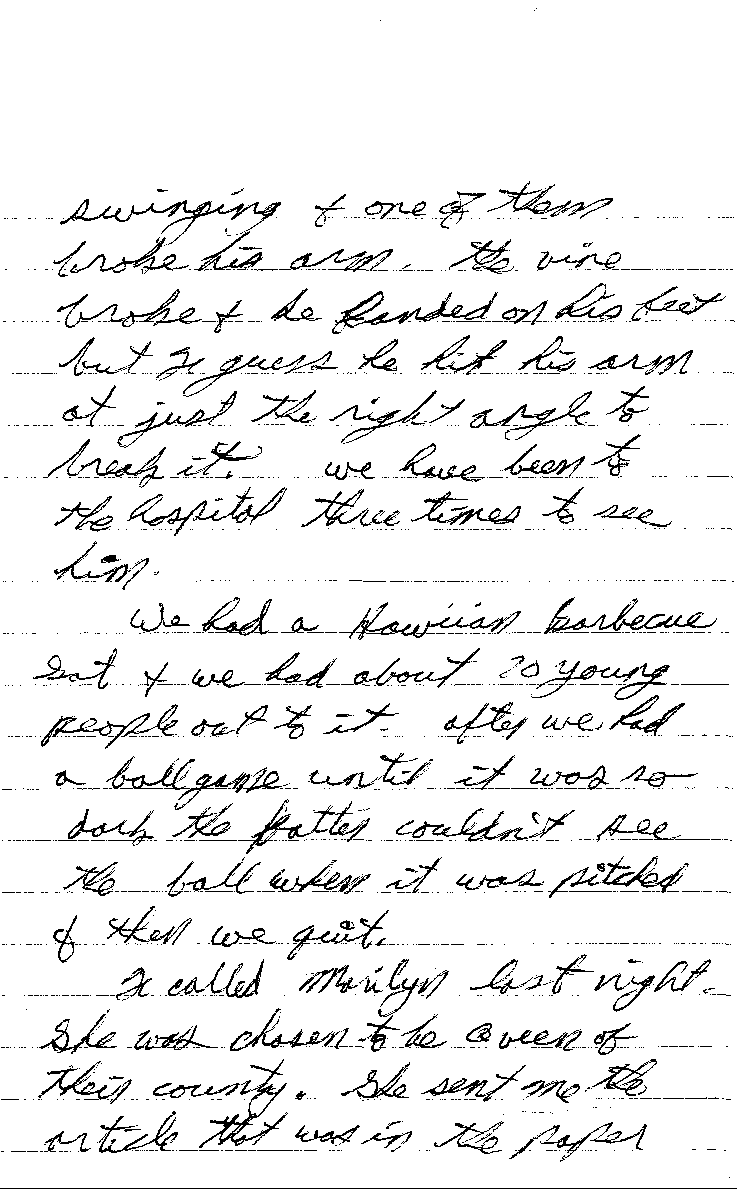 swinging & one of them
broke his arm. the vine
broke & he landed on his feet
but I guess he hit his arm
at just the right angle to
break it. we have been to
the hospital three times to see
him.
We had a Hawiian barbecue
Sat & we had about 20 young
people out to it. after we had
a ball game until it was so
dark the batter couldn't see
the ball when it was pitched
& then we quit.
I called Marilyn last night.
She was chosen to be Queen of
their county. She sent me the
article that was in the paper